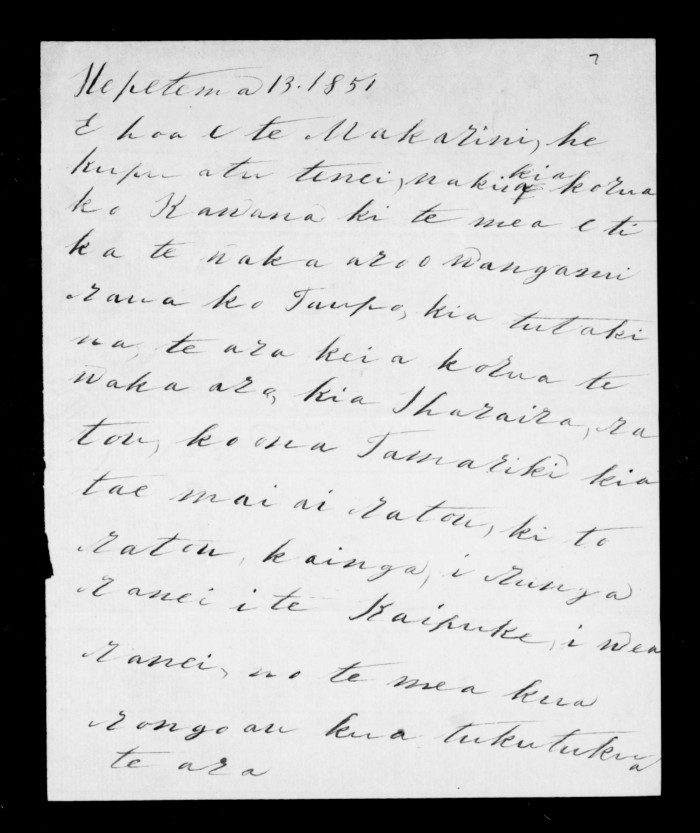 7
Hepetema 13. 1851
E hoa e te Makarini, he
kupu atu tenei, naku kia korua
ko Kawana ki te mea e ti
ka te waka aroo Wangami
raua ko Taupo, kia tutaki
na, te ara kei a korua te
waka ara, kia Iharaira, ra
tou, ko ona Tamariki kia
tae mai ai ratou, ki to
ratou, kainga, i runga
ranei i te Kaipuke, i wea
ranei, no te mea kua
rongo au kua tukutukua
te ara